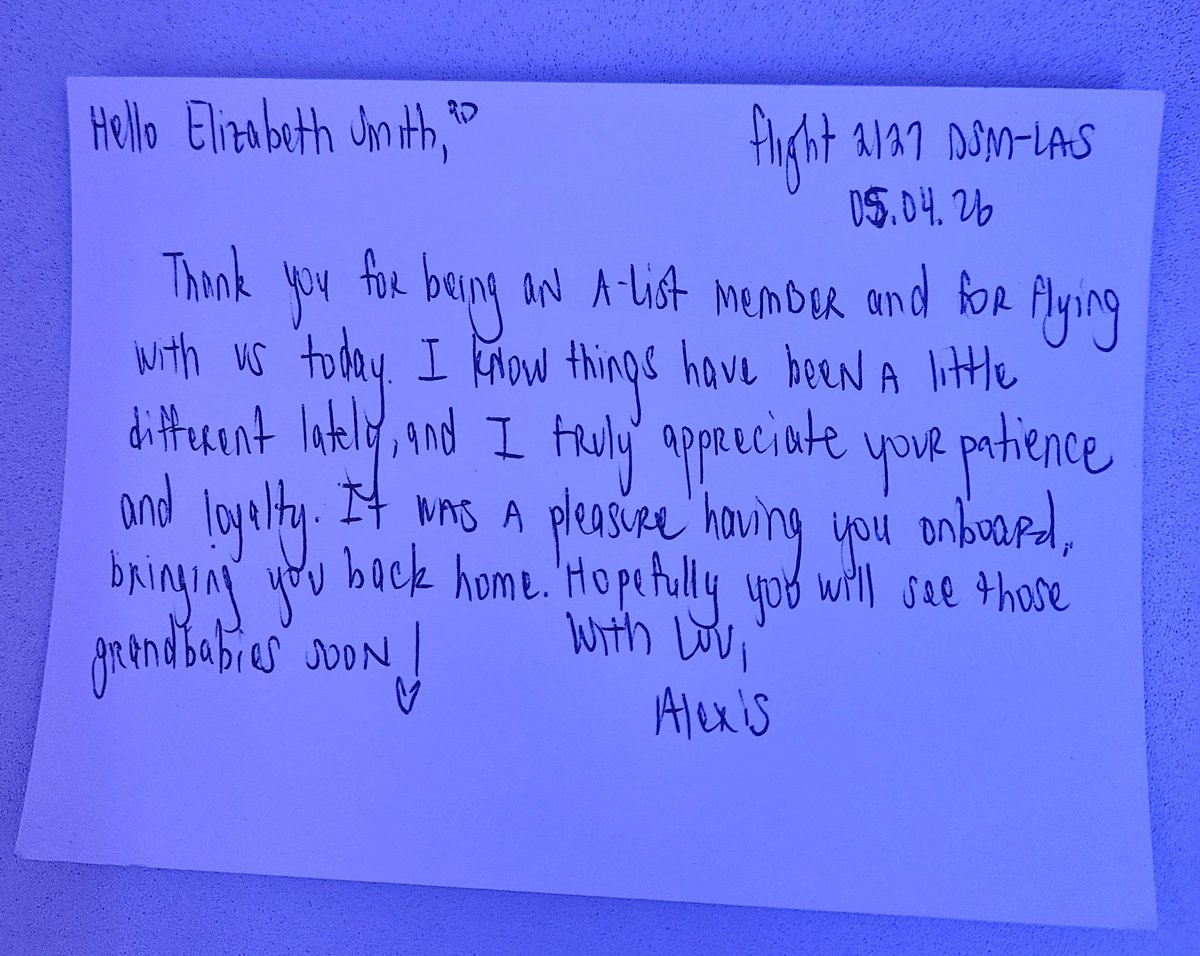 Hello Elizabeth Smith, 9D
flight 2127 DSM-LAS
05.04.26
Thank you for being an A-List member and for flying
with us today. I know things have been a little
different lately, and I truly appreciate your patience
and loyalty. It was a pleasure having you onboard,
bringing you back home. Hopefully you will see those
grandbabies soon!
With Luv,
Alexis